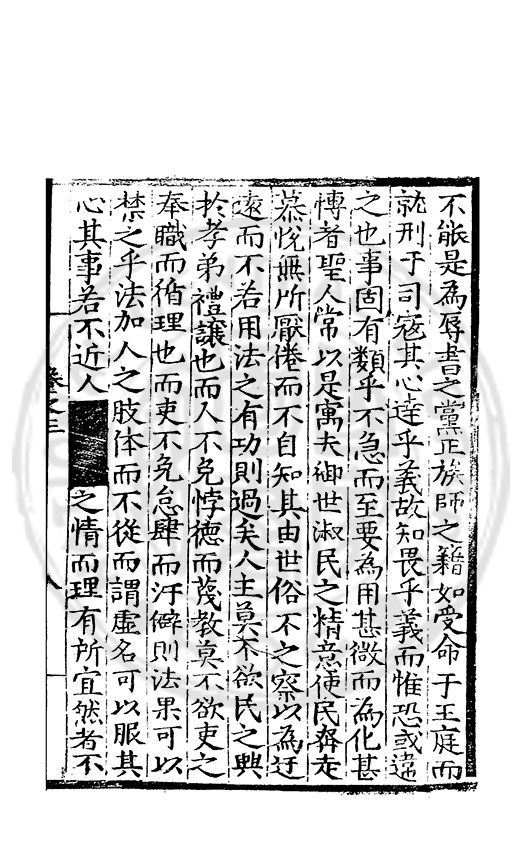 不能是為辱書之黨正族師之籍如受命于王庭而
就刑于司寇其心達乎義故知畏乎義而惟恐或違
之也事固有類乎不急而至要為用甚微而為化甚
博者聖人常以是寓夫御世淑民之精意使民奔走
慕悅無所厭倦而不自知其由世俗不之察以為迂
遠而不若用法之有功則過矣人主莫不欲民之興
扵孝弟禮讓也而人不免悖德而蔑教莫不欲吏之
奉職而循理也而吏不免怠肆而汙僻則法果可以
禁之乎法加人之肢体而不從而謂虛名可以服其
心其事若不近人之情而理有所宜然者不
卷之三
八